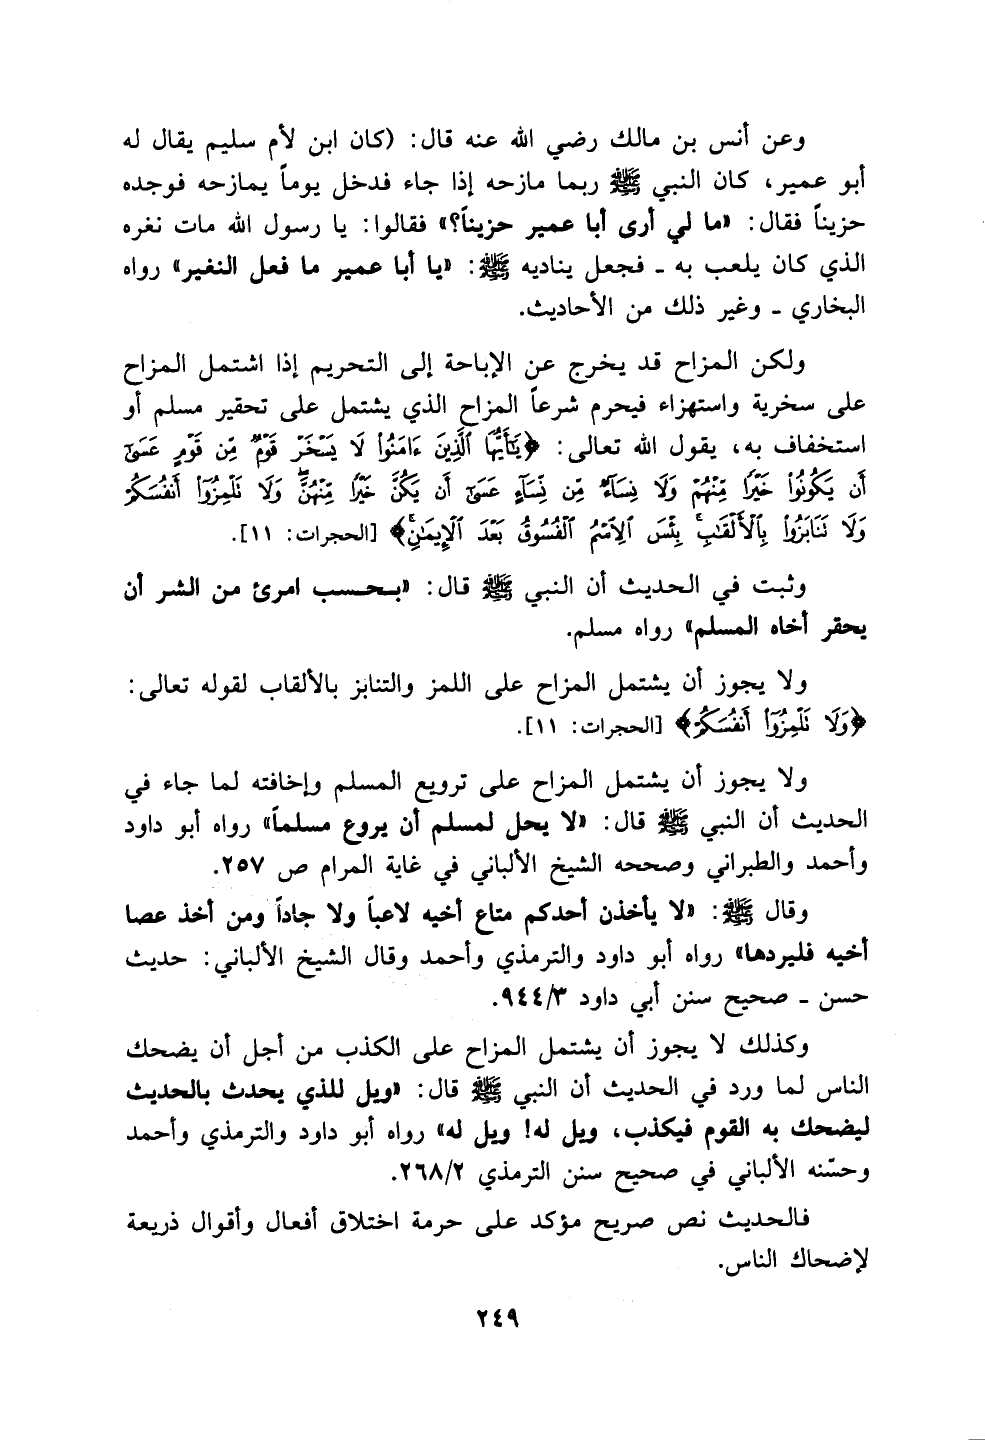 وعن أنس بن مالك رضي الله عنه قال: (كان ابن لأم سليم يقال له
أبو عمير، كان النبي ﷺ ربما مازحه إذا جاء فدخل يوماً يمازحه فوجده
حزيناً فقال: «ما لي أرى أبا عمير حزيناً؟» فقالوا: يا رسول الله مات نغره
الذي كان يلعب به ـ فجعل يناديه ﷺ: «يا أبا عمير ما فعل النغير» رواه
البخاري ـ وغير ذلك من الأحاديث.
ولكن المزاح قد يخرج عن الإباحة إلى التحريم إذا اشتمل المزاح
على سخرية واستهزاء فيحرم شرعاً المزاح الذي يشتمل على تحقير مسلم أو
استخفاف به، يقول الله تعالى: ﴿يَٰٓأَيُّهَا ٱلَّذِينَ ءَامَنُواْ لَا يَسۡخَرۡ قَوۡمٞ مِّن قَوۡمٍ عَسَىٰٓ
أَن يَكُونُواْ خَيۡرٗا مِّنۡهُمۡ وَلَا نِسَآءٞ مِّن نِّسَآءٍ عَسَىٰٓ أَن يَكُنَّ خَيۡرٗا مِّنۡهُنَّۖ وَلَا تَلۡمِزُوٓاْ أَنفُسَكُمۡ
وَلَا تَنَابَزُواْ بِٱلۡأَلۡقَٰبِۖ بِئۡسَ ٱلِٱسۡمُ ٱلۡفُسُوقُ بَعۡدَ ٱلۡإِيمَٰنِۚ﴾ [الحجرات: ١١].
وثبت في الحديث أن النبي ﷺ قال: «بحسب امرئ من الشر أن
يحقر أخاه المسلم» رواه مسلم.
ولا يجوز أن يشتمل المزاح على اللمز والتنابز بالألقاب لقوله تعالى:
﴿وَلَا تَلۡمِزُوٓاْ أَنفُسَكُمۡ﴾ [الحجرات: ١١].
ولا يجوز أن يشتمل المزاح على ترويع المسلم وإخافته لما جاء في
الحديث أن النبي ﷺ قال: «لا يحل لمسلم أن يروع مسلماً» رواه أبو داود
وأحمد والطبراني وصححه الشيخ الألباني في غاية المرام ص ٢٥٧.
وقال ﷺ: «لا يأخذن أحدكم متاع أخيه لاعباً ولا جاداً ومن أخذ عصا
أخيه فليردها» رواه أبو داود والترمذي وأحمد وقال الشيخ الألباني: حديث
حسن ـ صحيح سنن أبي داود ٩٤٤/٣.
وكذلك لا يجوز أن يشتمل المزاح على الكذب من أجل أن يضحك
الناس لما ورد في الحديث أن النبي ﷺ قال: «ويل للذي يحدث بالحديث
ليضحك به القوم فيكذب، ويل له! ويل له» رواه أبو داود والترمذي وأحمد
وحسّنه الألباني في صحيح سنن الترمذي ٢٦٨/٢.
فالحديث نص صريح مؤكد على حرمة اختلاق أفعال وأقوال ذريعة
لإضحاك الناس.
٢٤٩